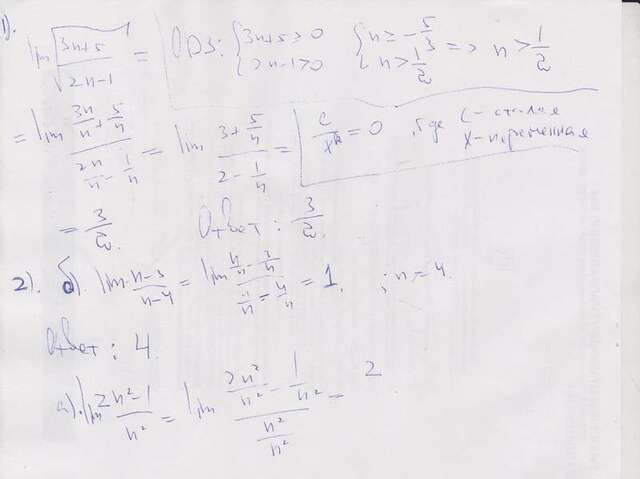 1). lim √(3n+5)/(2n-1) = ОДЗ: { 3n+5 ≥ 0 { n ≥ -5/3 => n > 1/2
{ 2n-1 > 0 { n > 1/2
= lim (3n/n + 5/n)/(2n/n - 1/n) = lim (3 + 5/n)/(2 - 1/n) = | c/x^k = 0, где C - стала
x - переменная
= 3/2. Ответ: 3/2.
2). б). lim n-3/n-4 = lim (n/n - 3/n)/(n/n = 4/n) = 1. ; n = 4.
Ответ: 4.
а). lim 2n²-1/n² = lim (2n²/n² - 1/n²)/(n²/n²) = 2